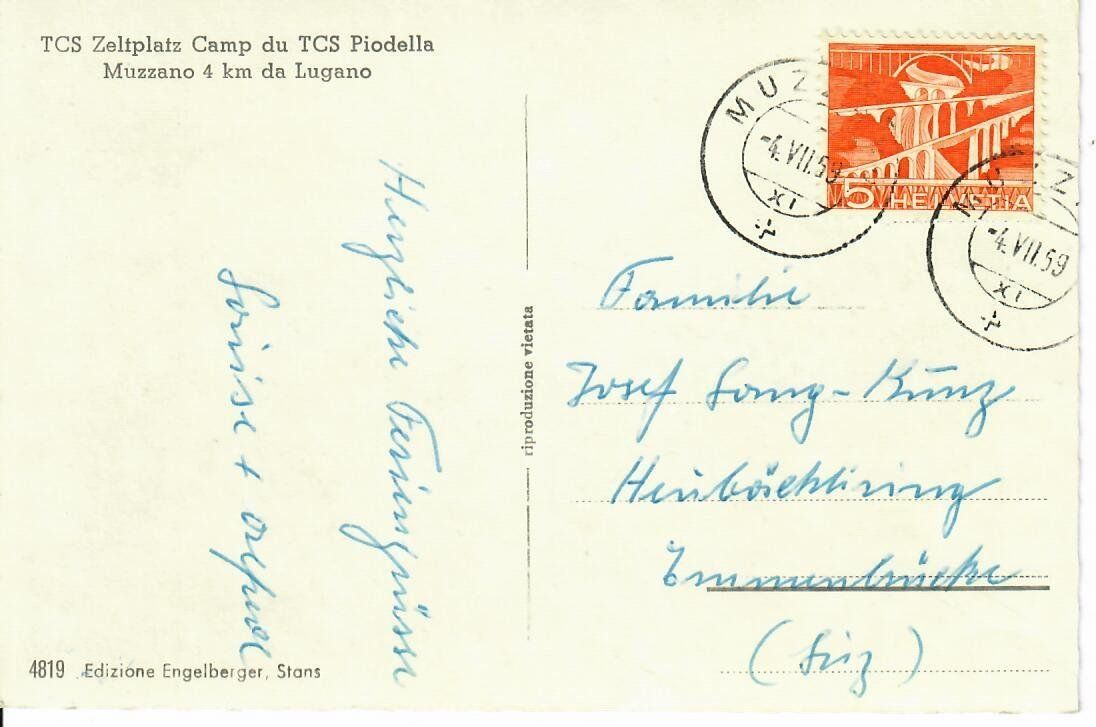 TCS Zeltplatz Camp du TCS Piodella
Muzzano 4 km da Lugano
Herzliche Feriengrüsse
Louise + Alfred
4819 Edizione Engelberger, Stans
riproduzione vietata
5 HELVETIA
MUZZ
-4.VII.59
XI
MUZZ
-4.VII.59
XI
Familie
Josef Lang-Kunz
Heubächliring
Emmenbrücke
(Luz)